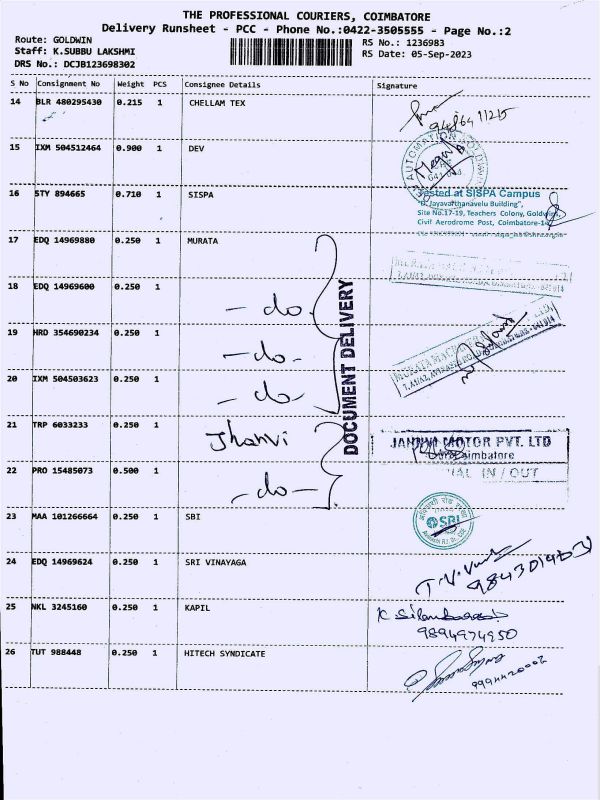 THE PROFESSIONAL COURIERS, COIMBATORE
Delivery Runsheet - PCC - Phone No.:0422-3505555 - Page No.:2
Route: GOLDWIN
Staff: K.SUBBU LAKSHMI
DRS No.: DCJB123698302
RS No.: 1236983
RS Date: 05-Sep-2023
S No Consignment No Weight PCS Consignee Details Signature
14 BLR 480295430 0.215 1 CHELLAM TEX
15 IXM 504512464 0.900 1 DEV
AUTOMATION
16 STY 894665 0.710 1 SISPA
at SISPA Campus
Jayavarthanavelu Building",
Site No.17-19, Teachers Colony, Goldwins,
Civil Aerodrome Post, Coimbatore-14
17 EDQ 14969880 0.250 1 MURATA
18 EDQ 14969600 0.250 1 - do.
19 HRD 354690234 0.250 1 - do -
20 IXM 504503623 0.250 1 - do -
DOCUMENT DELIVERY
21 TRP 6033233 0.250 1 Jhanvi
MOTOR PVT. LTD
22 PRO 15485073 0.500 1 - do -
IN / OUT
23 MAA 101266664 0.250 1 SBI
24 EDQ 14969624 0.250 1 SRI VINAYAGA
25 NKL 3245160 0.250 1 KAPIL
9894974950
26 TUT 988448 0.250 1 HITECH SYNDICATE
9994420002